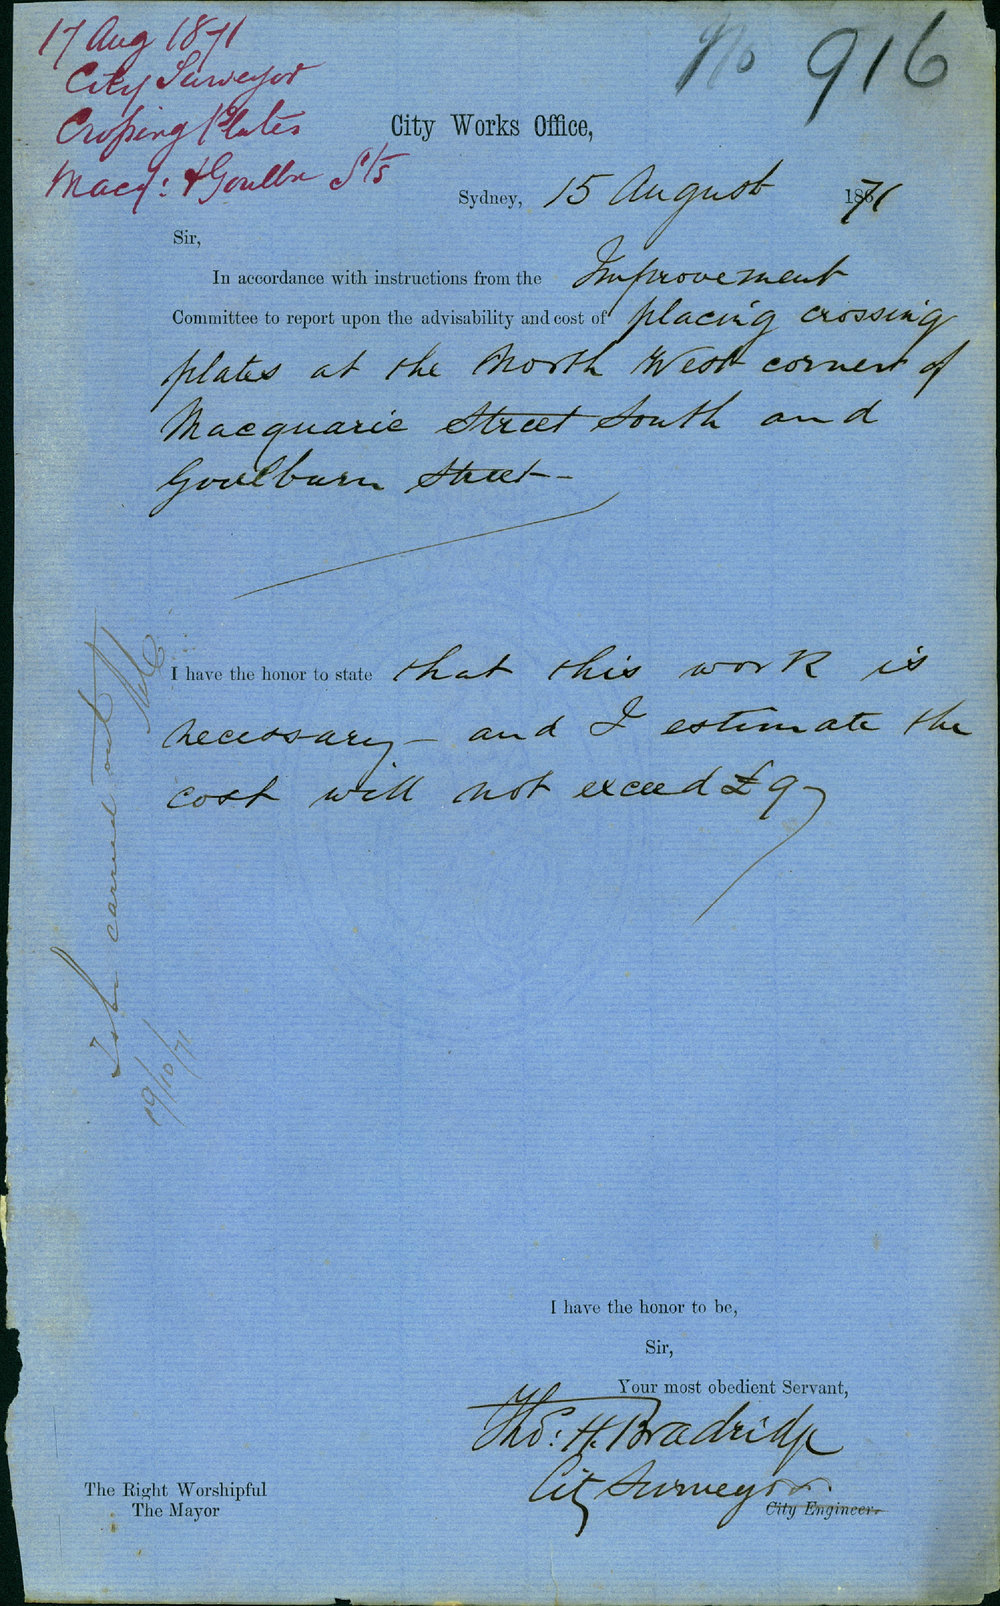 17 Aug 1871
City Surveyor
Crossing Plates
Macq: & Goulbn Sts
No 916
City Works Office,
Sydney, 15 August 1871
Sir,
In accordance with instructions from the Improvement
Committee to report upon the advisability and cost of placing crossing
plates at the North West corner of
Macquarie Street South and
Goulburn Street—
I have the honor to state that this work is
necessary— and I estimate the
cost will not exceed £9
To be carried out
19/10/71
I have the honor to be,
Sir,
Your most obedient Servant,
Thos: H. Bradridge
City Surveyor
City Engineer.
The Right Worshipful
The Mayor